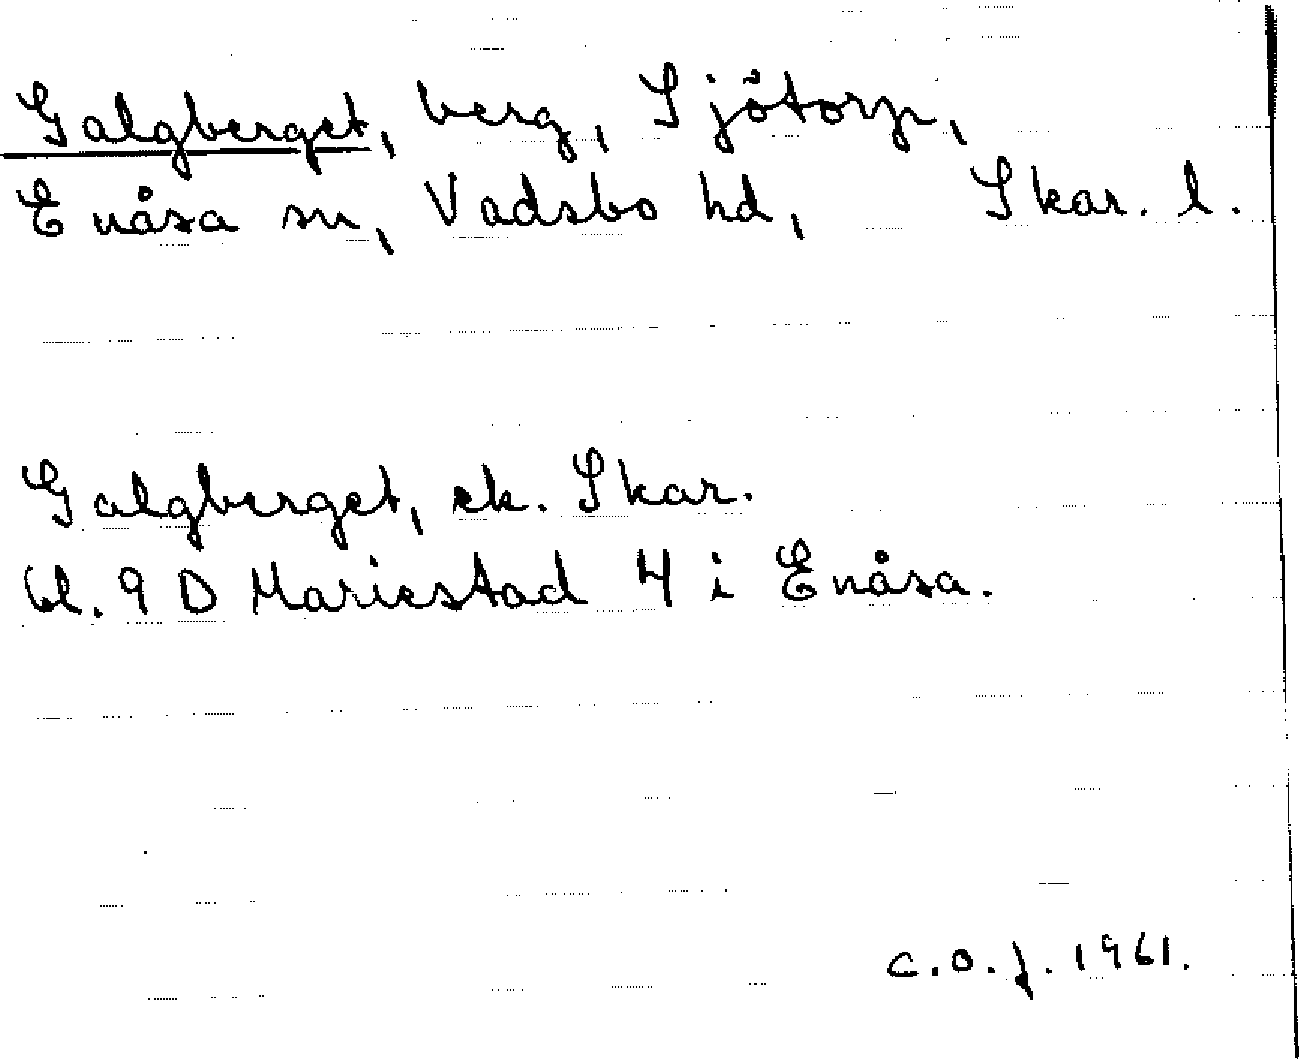 Galgberget, berg, Sjötorp,
Enåsa sn, Vadsbo hd, Skar. l.
Galgberget, ek. Skar.
bl. 9 D Mariestad 4 i Enåsa.
C.O.J. 1961.